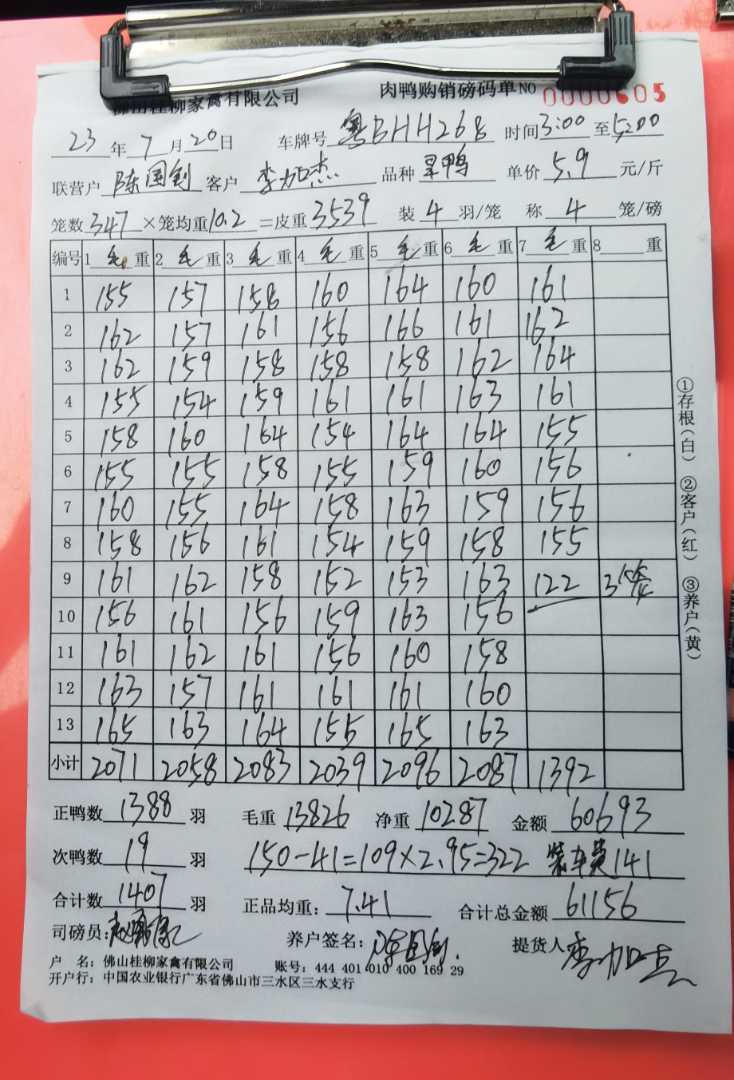 佛山桂柳家禽有限公司 肉鸭购销磅码单 NO 0000605
23 年 7 月 20 日 车牌号 粤BHH268 时间 3:00 至 5:00
联营户 陈国钊 客户 李加杰 品种 旱鸭 单价 5.9 元/斤
笼数 347 ×笼均重 10.2 =皮重 3539 装 4 羽/笼 称 4 笼/磅
编号 1 毛 重 2 毛 重 3 毛 重 4 毛 重 5 毛 重 6 毛 重 7 毛 重 8 重
1 155 157 158 160 164 160 161
2 162 157 161 156 166 161 162
3 162 159 158 158 158 162 164
4 155 154 159 161 161 163 161
5 158 160 164 154 164 164 155
6 155 155 158 155 159 160 156
7 160 155 164 158 163 159 156
8 158 156 161 154 159 158 155
9 161 162 158 152 153 163 122 3
10 156 161 156 159 163 156
11 161 162 161 156 160 158
12 163 157 161 161 161 160
13 165 163 164 155 165 163
小计 2071 2058 2083 2039 2096 2087 1392
正鸭数 1388 羽 毛重 13826 净重 10287 金额 60693
次鸭数 19 羽 150-41=109×2.95=322 装车费141
合计数 1407 羽 正品均重: 7.41 合计总金额 61156
司磅员: 养户签名: 陈国钊 提货人 李加杰
户 名: 佛山桂柳家禽有限公司 账号: 444 401 010 400 169 29
开户行: 中国农业银行广东省佛山市三水区三水支行
①存根(白) ②客户(红) ③养户(黄)